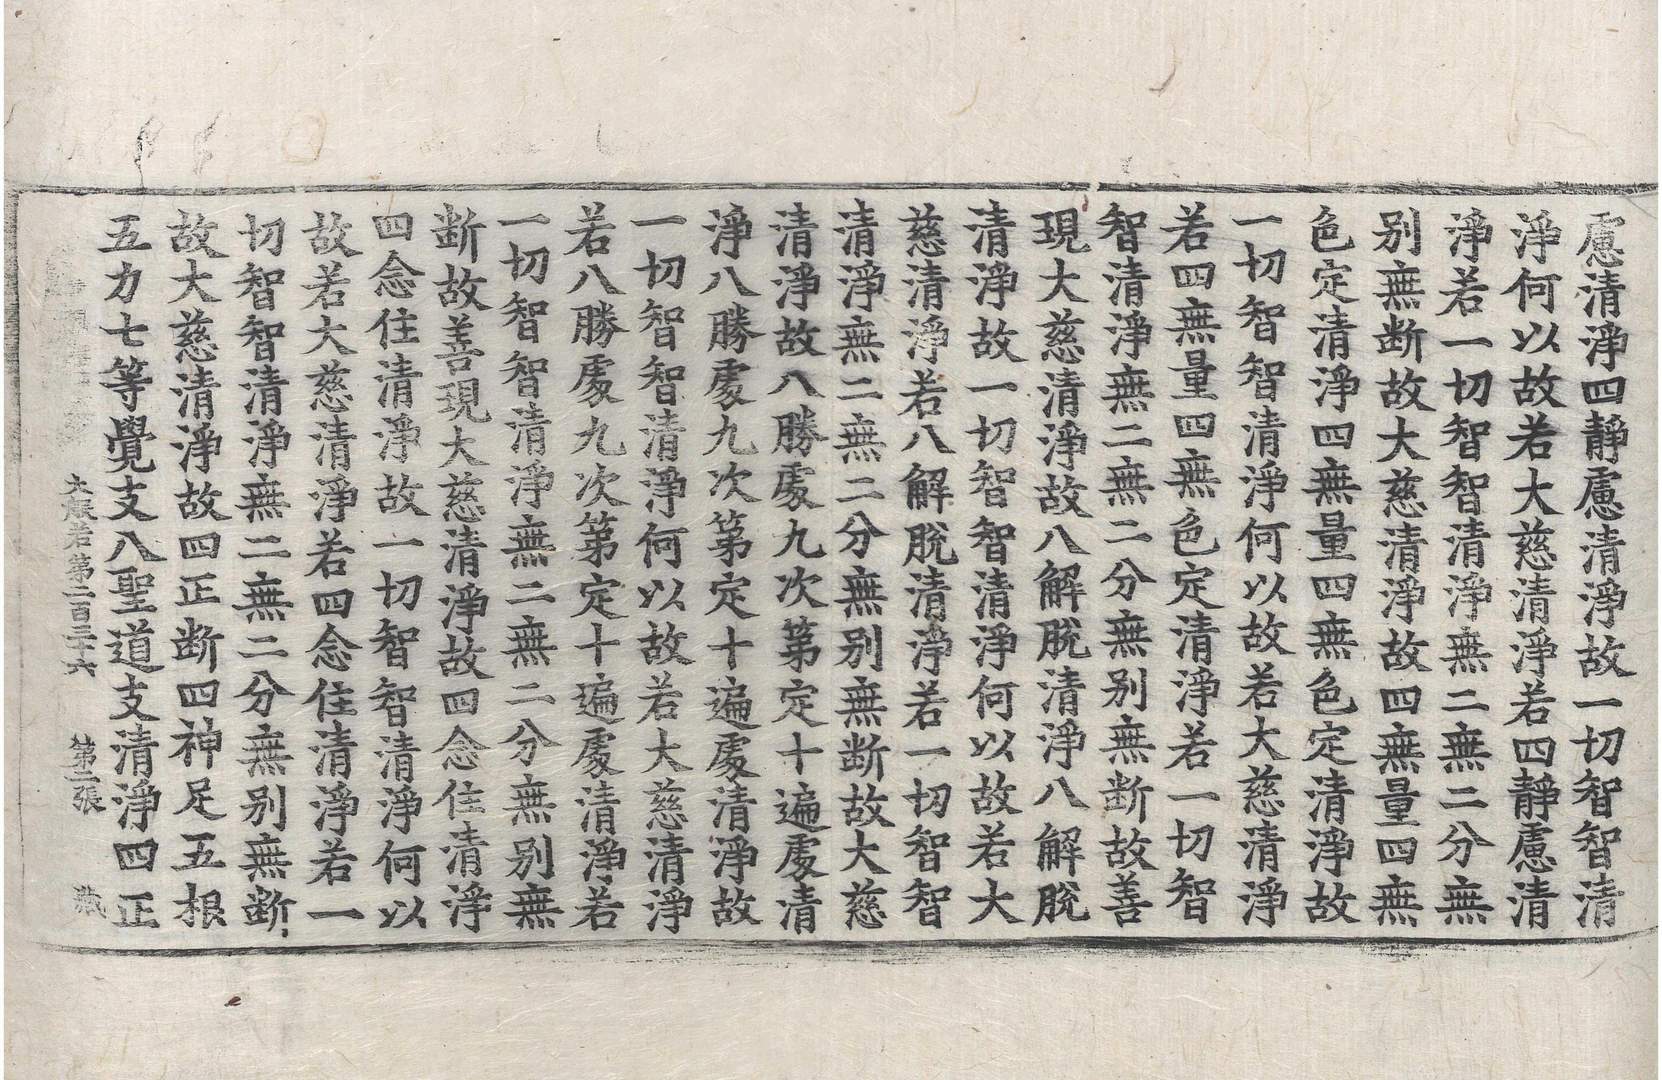 慮清淨四靜慮清淨故一切智智清
淨何以故若大慈清淨若四靜慮清
淨若一切智智清淨無二無二分無
别無断故大慈清淨故四無量四無
色定清淨四無量四無色定清淨故
一切智智清淨何以故若大慈清淨
若四無量四無色定清淨若一切智
智清淨無二無二分無别無断故善
現大慈清淨故八解脫清淨八解脫
清淨故一切智智清淨何以故若大
慈清淨若八解脫清淨若一切智智
清淨無二無二分無别無断故大慈
清淨故八勝處九次第定十遍處清
淨八勝處九次第定十遍處清淨故
一切智智清淨何以故若大慈清淨
若八勝處九次第定十遍處清淨若
一切智智清淨無二無二分無别無
断故善現大慈清淨故四念住清淨
四念住清淨故一切智智清淨何以
故若大慈清淨若四念住清淨若一
切智智清淨無二無二分無别無断
故大慈清淨故四正断四神足五根
五力七等覺支八聖道支清淨四正
大般若第二百三十六 第二張